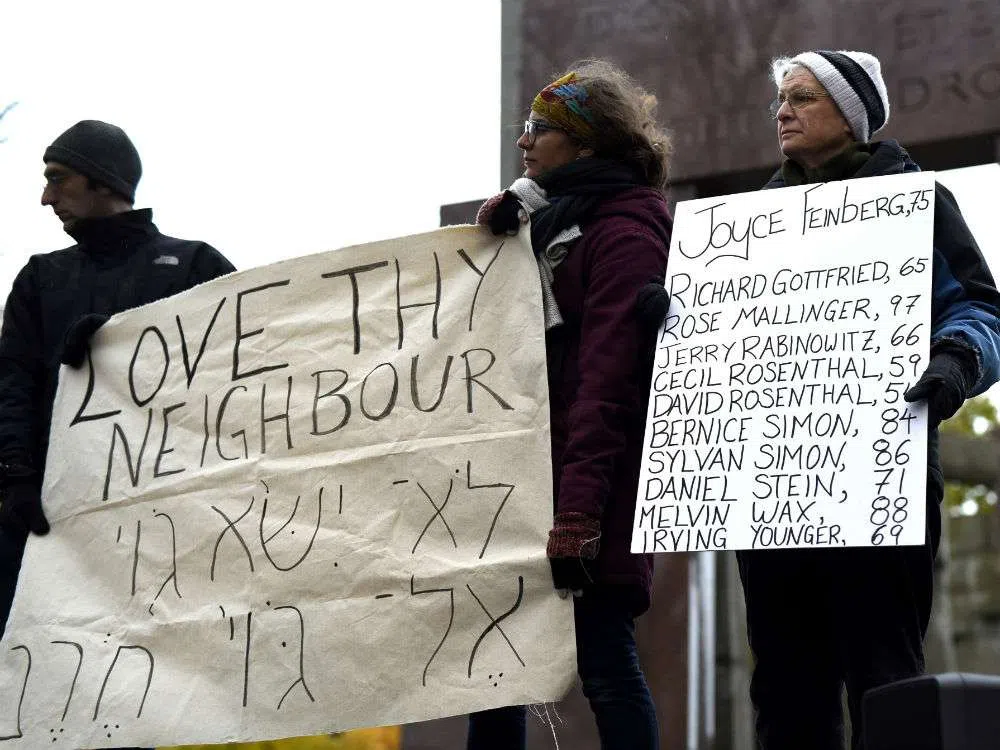 LOVE THY
NEIGHBOUR
לֹא־ יִשָּׂא גוֹי
אֶל־ גּוֹי חֶרֶב
JOYCE FEINBERG,75
RICHARD GOTTFRIED, 65
ROSE MALLINGER, 97
JERRY RABINOWITZ, 66
CECIL ROSENTHAL, 59
DAVID ROSENTHAL,
BERNICE SIMON, 84
SYLVAN SIMON, 86
DANIEL STEIN, 71
MELVIN WAX, 88
IRVING YOUNGER, 69